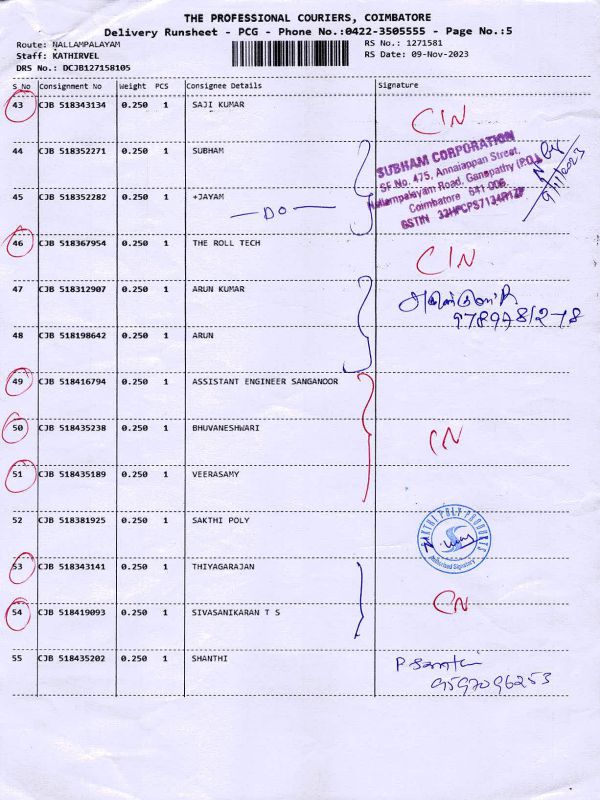 THE PROFESSIONAL COURIERS, COIMBATORE
Delivery Runsheet - PCG - Phone No.:0422-3505555 - Page No.:5
Route: NALLAMPALAYAM
RS No.: 1271581
Staff: KATHIRVEL
RS Date: 09-Nov-2023
DRS No.: DCJB127158105
S_No Consignment No Weight PCS Consignee Details Signature
43 CJB 518343134 0.250 1 SAJI KUMAR
CIN
44 CJB 518352271 0.250 1 SUBHAM
SUBHAM CORPORATION
SF No. 475, Annaiappan Street,
Nallampalayam Road, Ganapathy (P.O.),
Coimbatore 641 006.
9/11/2023
45 CJB 518352282 0.250 1 +JAYAM
— DO —
46 CJB 518367954 0.250 1 THE ROLL TECH
CIN
47 CJB 518312907 0.250 1 ARUN KUMAR
48 CJB 518198642 0.250 1 ARUN
49 CJB 518416794 0.250 1 ASSISTANT ENGINEER SANGANOOR
50 CJB 518435238 0.250 1 BHUVANESHWARI
CN
51 CJB 518435189 0.250 1 VEERASAMY
52 CJB 518381925 0.250 1 SAKTHI POLY
SAKTHI POLY PRODUCTS
Authorised Signatory
53 CJB 518343141 0.250 1 THIYAGARAJAN
CN
54 CJB 518419093 0.250 1 SIVASANIKARAN T S
55 CJB 518435202 0.250 1 SHANTHI
9597096253